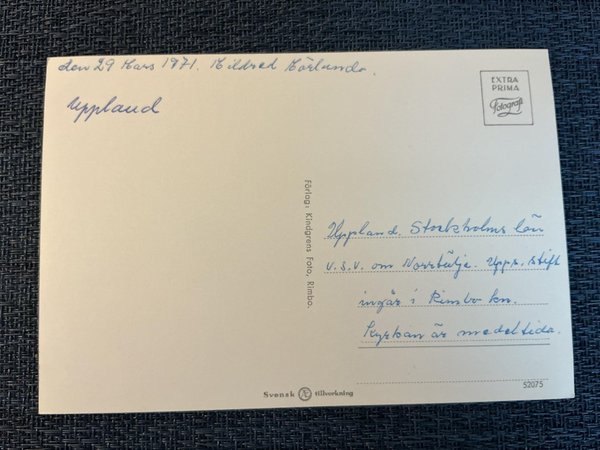 den 29 Mars 1971. Mildred Hörlanda.
Uppland
EXTRA
PRIMA
Fotografi
Förlag: Kindgrens Foto, Rimbo.
Uppland. Stockholms län
v.s.v. om Norrtälje. Upps. stift
ingår i Rimbo kn.
Kyrkan är medeltida.
Svensk Æ tillverkning
52075